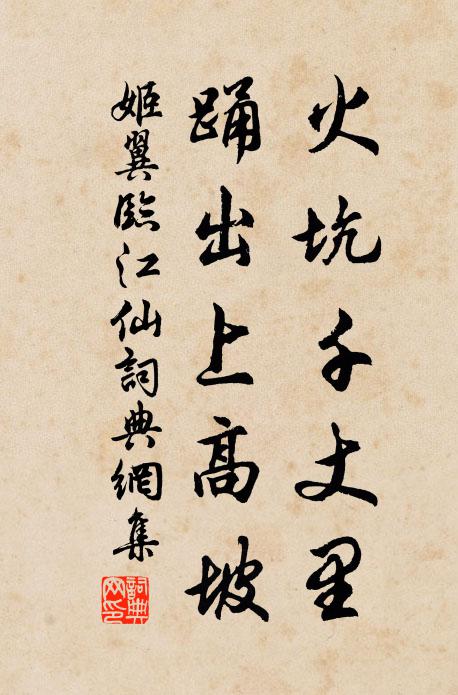 火坑千丈里
踊出上高坡
姬翼臨江仙詞典網集
詞典網印